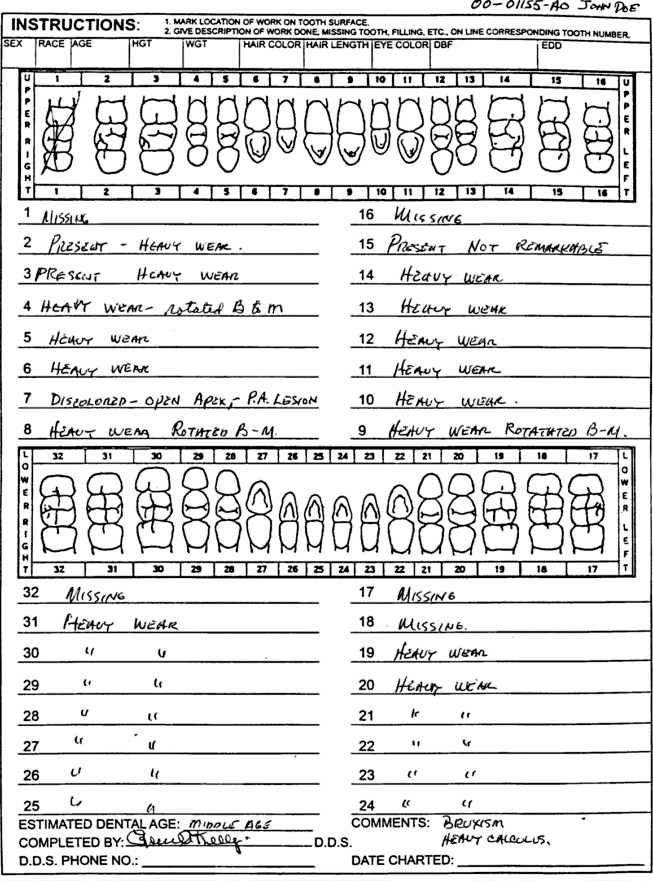 00-01155-AO JOHN DOE
INSTRUCTIONS: 1. MARK LOCATION OF WORK ON TOOTH SURFACE.
2. GIVE DESCRIPTION OF WORK DONE; MISSING TOOTH, FILLING, ETC., ON LINE CORRESPONDING TOOTH NUMBER.
SEX RACE AGE HGT WGT HAIR COLOR HAIR LENGTH EYE COLOR DBF EDD
UPPER RIGHT 1 2 3 4 5 6 7 8 9 10 11 12 13 14 15 16 UPPER LEFT
1 2 3 4 5 6 7 8 9 10 11 12 13 14 15 16
1 MISSING 16 MISSING
2 PRESENT - HEAVY WEAR. 15 PRESENT NOT REMARKABLE
3 PRESENT HEAVY WEAR 14 HEAVY WEAR
4 HEAVY WEAR - rotated B to M 13 HEAVY WEAR
5 HEAVY WEAR 12 HEAVY WEAR
6 HEAVY WEAR 11 HEAVY WEAR
7 DISCOLORED - OPEN APEX, - P.A. LESION 10 HEAVY WEAR.
8 HEAVY WEAR ROTATED B-M. 9 HEAVY WEAR ROTATATED B-M.
LOWER RIGHT 32 31 30 29 28 27 26 25 24 23 22 21 20 19 18 17 LOWER LEFT
32 31 30 29 28 27 26 25 24 23 22 21 20 19 18 17
32 MISSING 17 MISSING
31 HEAVY WEAR 18 MISSING.
30 " " 19 HEAVY WEAR
29 " " 20 HEAVY WEAR
28 " " 21 " "
27 " " 22 " "
26 " " 23 " "
25 " " 24 " "
ESTIMATED DENTAL AGE: MIDDLE AGE COMMENTS: BRUXISM
COMPLETED BY: D.D.S. HEAVY CALCULUS.
D.D.S. PHONE NO.: DATE CHARTED: